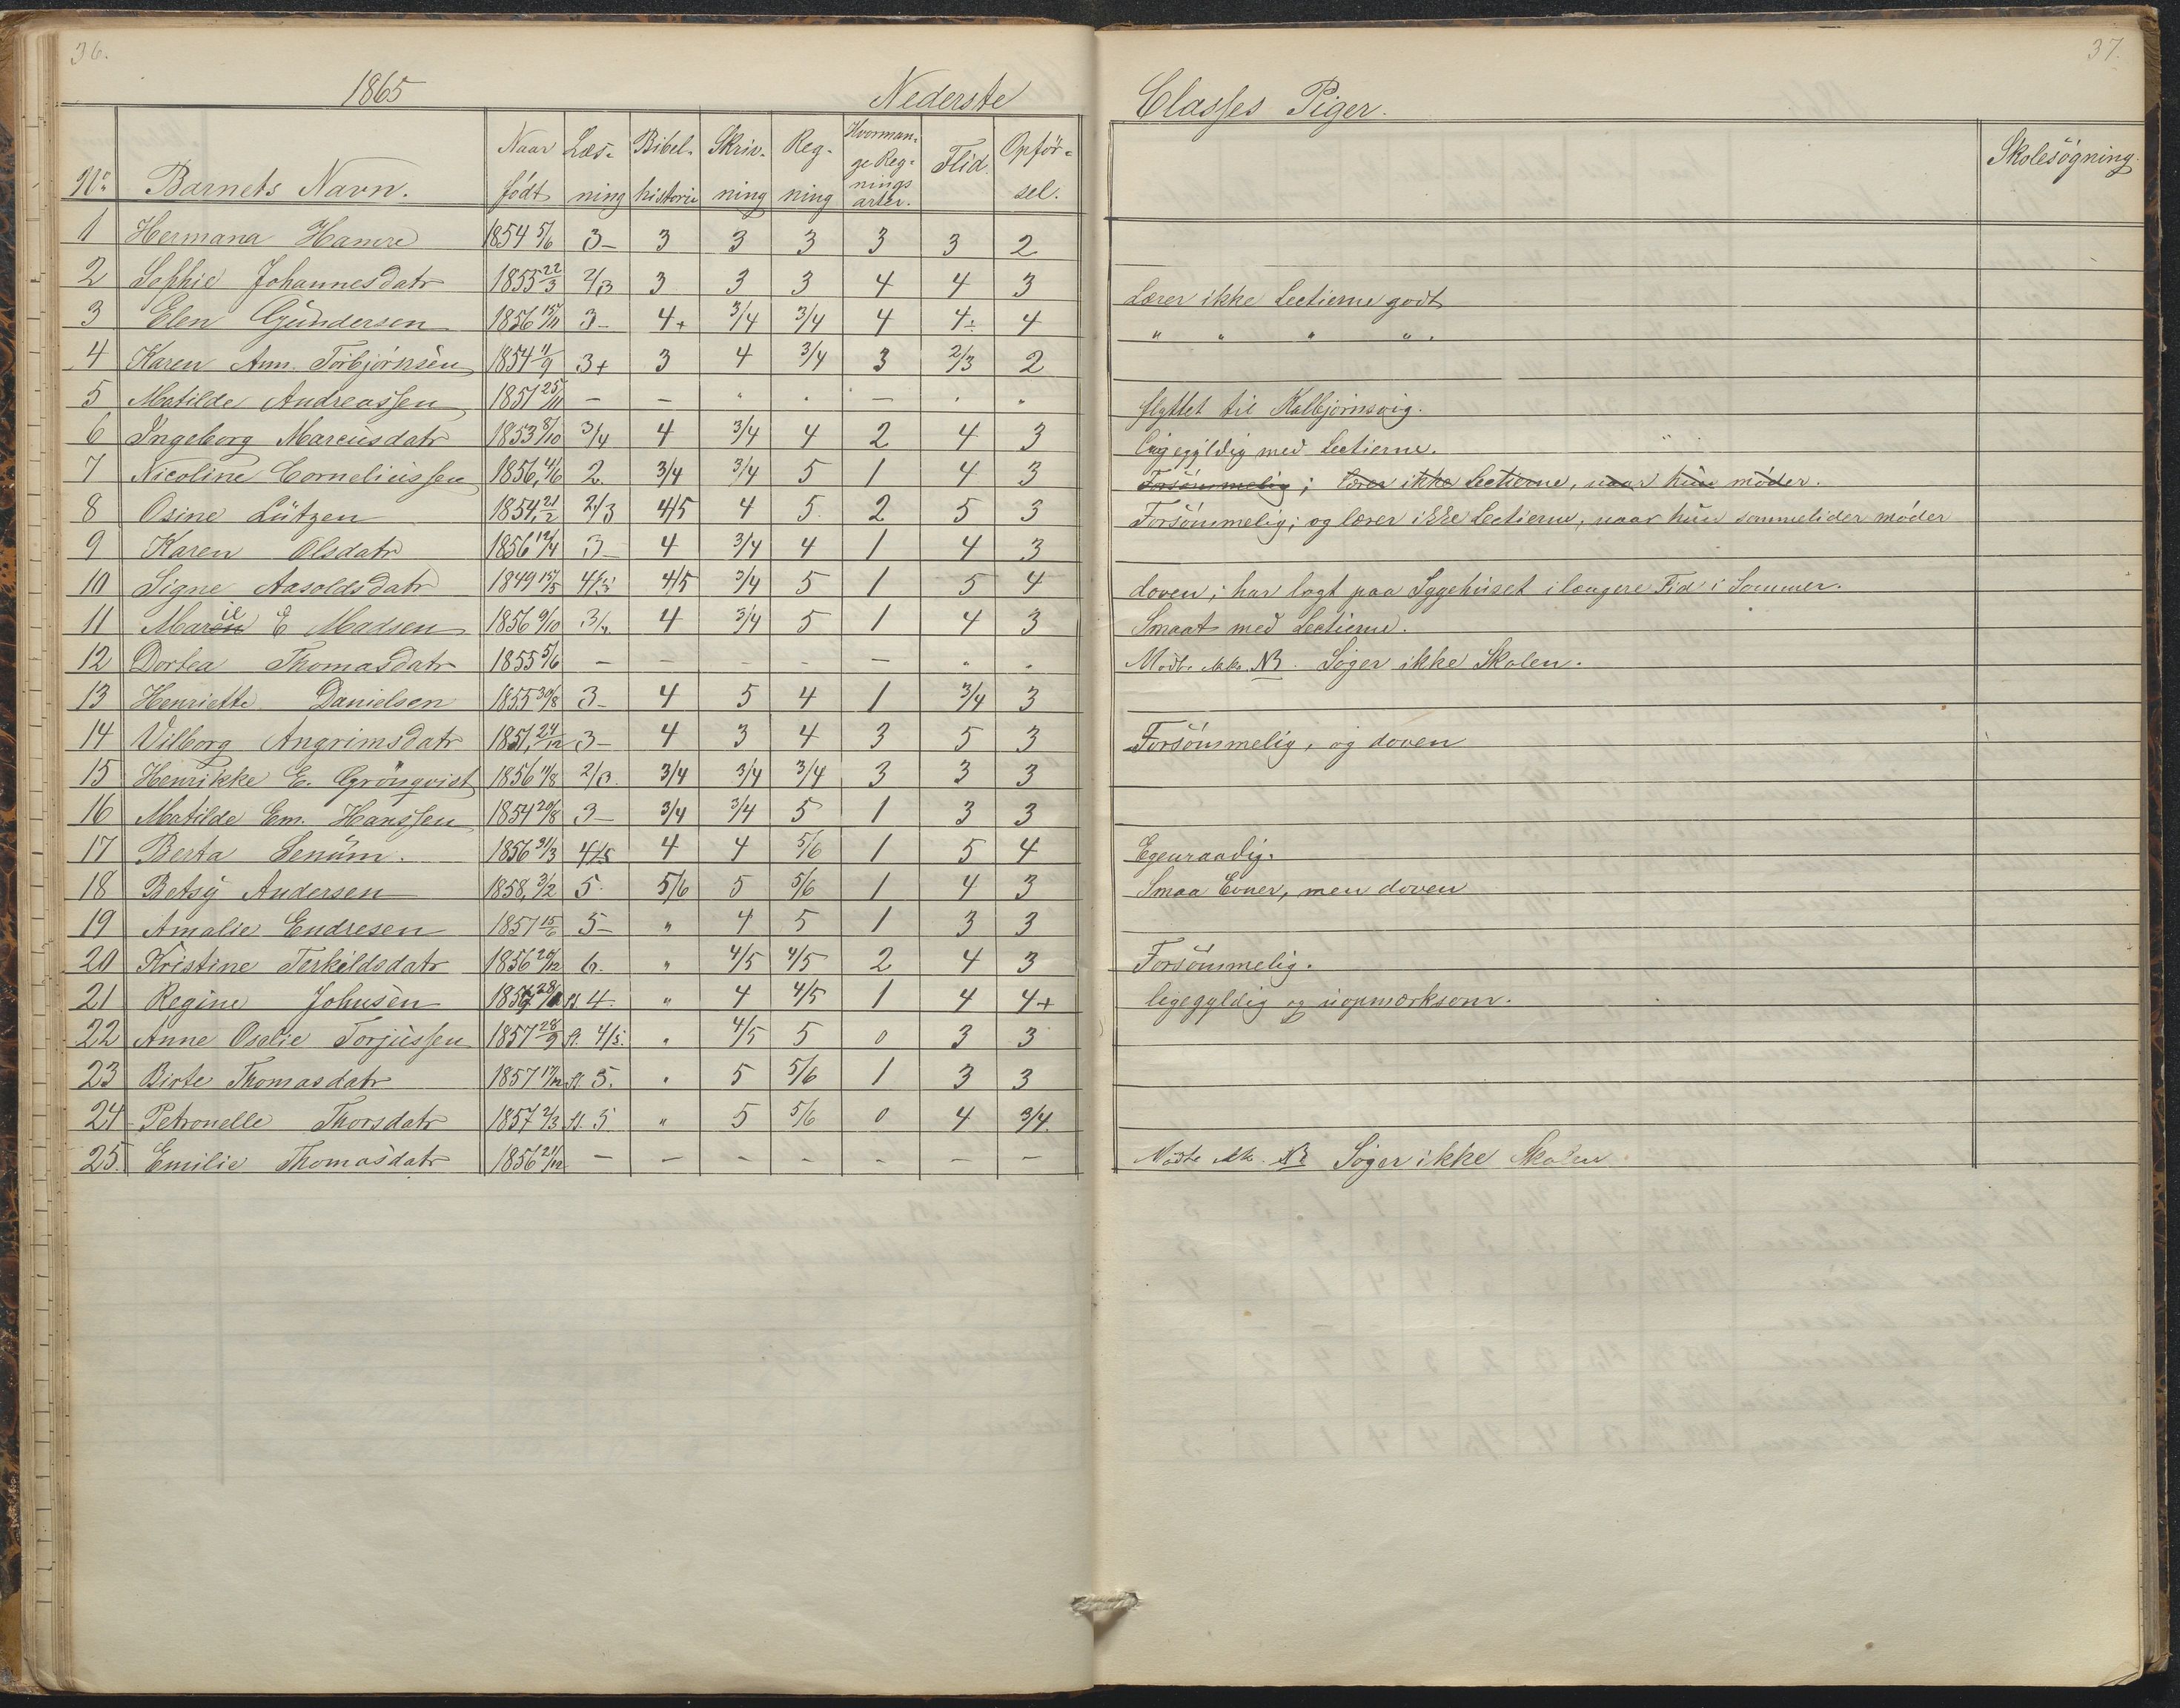 36.
37.
1865 Nederste Classes Piger.
No Barnets Navn. Naar født Læsning Bibelhistorie Skrivning Regning Hvormange Regningsarter. Flid. Opførsel. Skolesøgning.
1 Hermana Hamre 1854 5/6 3- 3 3 3 3 3 2
2 Sophie Johannesdatr 1855 22/3 2/3 3 3 3 4 4 3 Lærer ikke Lectierne godt
3 Elen Gundersen 1856 15/11 3- 4+ 3/4 3/4 4 4÷ 4 " " " " .
4 Karen Ann. Torbjörnsen 1854 11/9 3+ 3 4 3/4 3 2/3 2
5 Matilde Andreassen 1851 25/11 — — " . — . " flyttet til Kalbjörnsvig.
6 Ingeborg Marcusdatr 1853 8/10 3/4 4 3/4 4 2 4 3 ligegyldig med Lectierne.
7 Nicoline Corneliussen 1856, 4/6 2. 3/4 3/4 5 1 4 3 Forsömmelig; lærer ikke Lectierne, naar hun möder.
8 Osine Lützen 1854, 21/12 2/3 4/5 4 5. 2 5 3 Forsömmelig; og lærer ikke Lectierne, naar hun sommetider möder
9 Karen Olsdatr 1856 12/4 3- 4 3/4 4 1 4 3
10 Signe Aasoldsdatr 1849 15/5 4/3 4/5 3/4 5 1 5 4 doven; har lagt paa Sygehuset i længere Tid i Sommer.
11 Marie E Madsen 1856 9/10 3/4 4 3/4 5 1 4 3 Smaat med Lectierne.
12 Dortea Thomasdatr 1855 5/6 — — — — — " . Mödte ikke. NB. Söger ikke Skolen.
13 Henriette Danielsen 1855 30/8 3- 4 5 4 1 3/4 3
14 Vilborg Angrimsdatr 1851, 24/12 3- 4 3 4 3 5 3 Forsömmelig, og doven
15 Henrikke E. Grönqvist 1856 11/8 2/3. 3/4 3/4 3/4 3 3 3
16 Matilde Em. Hanssen 1854 20/8 3- 3/4 3/4 5 1 3 3
17 Berta Lenüm. 1856 31/3 4/5 4 4 5/6 1 5 4 Egenraadig.
18 Betsy Andersen 1858, 3/2 5. 5/6 5 5/6 1 4 3 Smaa Evner, men doven
19 Amalie Endresen 1857 15/6 5- " 4 5 1 3 3
20 Kristine Terkildsdatr 1856 20/12 6. " 4/5 4/5 2 4 3 Forsömmelig.
21 Regine Johnsen 28/ St. 4. " 4 4/5 1 4 4+ ligegyldig og uopmærksom.
22 Anne Osalie Torjussen 1857 28/9 St. 4/5. " 4/5 5 0 3 3
23 Birte Thomasdatr 1857 17/12 St. 5. " 5 5/6 1 3 3
24 Petronelle Thorsdatr 1857 2/3 St. 5 " 5 5/6 0 4 3/4.
25. Emilie Thomasdatr 1856 21/12 — — — — — — — Mödte ikke. NB Söger ikke Skolen